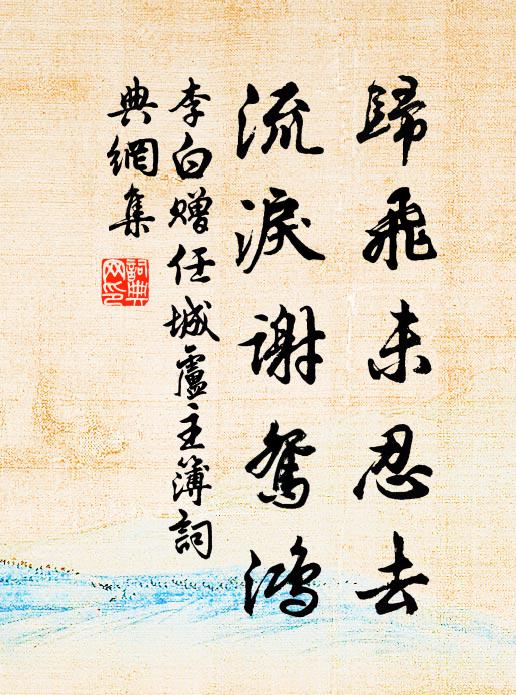 歸飛未忍去
流淚謝鴛鴻
李白贈任城盧主簿詞
典網集
詞典
网印